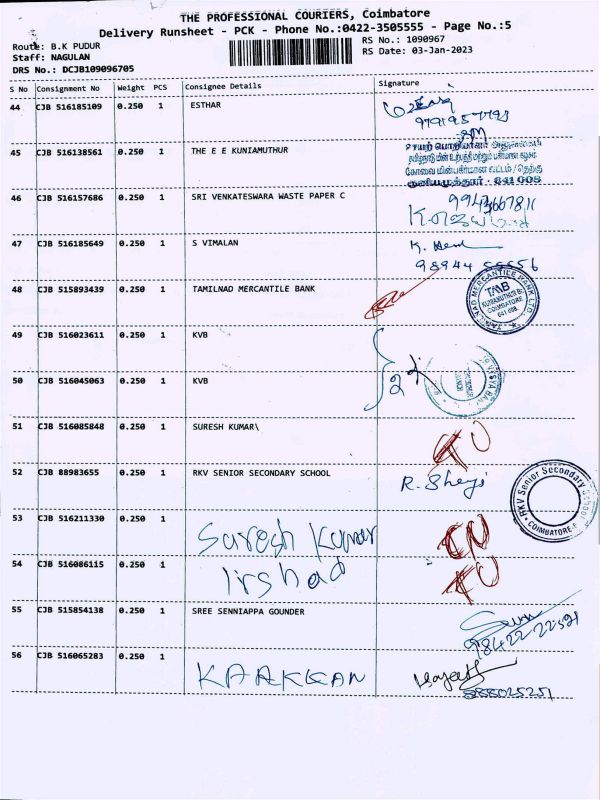 THE PROFESSIONAL COURIERS, Coimbatore
Delivery Runsheet - PCK - Phone No.:0422-3505555 - Page No.:5
Route: B.K PUDUR
Staff: NAGULAN
DRS No.: DCJB109096705
RS No.: 1090967
RS Date: 03-Jan-2023
S No Consignment No Weight PCS Consignee Details Signature
44 CJB 516185109 0.250 1 ESTHAR
45 CJB 516138561 0.250 1 THE E E KUNIAMUTHUR
46 CJB 516157686 0.250 1 SRI VENKATESWARA WASTE PAPER C
47 CJB 516185649 0.250 1 S VIMALAN
48 CJB 515893439 0.250 1 TAMILNAD MERCANTILE BANK
TAMILNAD MERCANTILE BANK LTD.
TMB
COIMBATORE
49 CJB 516023611 0.250 1 KVB
50 CJB 516045063 0.250 1 KVB
51 CJB 516085848 0.250 1 SURESH KUMAR\
52 CJB 88983655 0.250 1 RKV SENIOR SECONDARY SCHOOL R. Sheji
RKV Senior Secondary
COIMBATORE
53 CJB 516211330 0.250 1 Suresh Kumar
54 CJB 516086115 0.250 1 Irshad
55 CJB 515854138 0.250 1 SREE SENNIAPPA GOUNDER
56 CJB 516065283 0.250 1 KAAKKAN